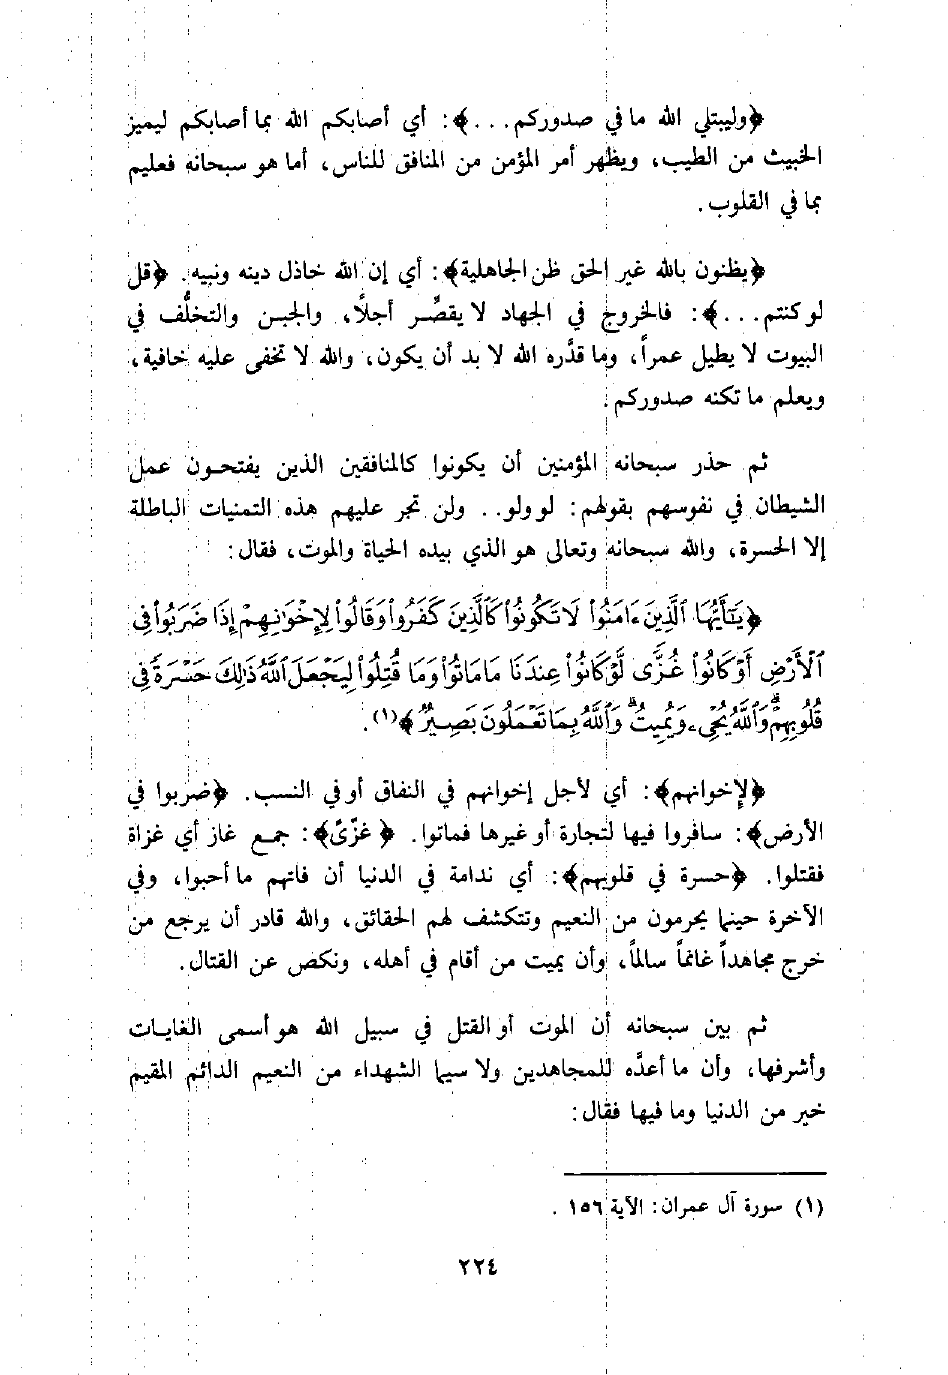 ﴿وليبتلي الله ما في صدوركم...﴾: أي أصابكم الله بما أصابكم ليميز
الخبيث من الطيب، ويظهر أمر المؤمن من المنافق للناس، أما هو سبحانه فعليم
بما في القلوب.
﴿يظنون بالله غير الحق ظن الجاهلية﴾: أي إن الله خاذل دينه ونبيه. ﴿قل
لو كنتم...﴾: فالخروج في الجهاد لا يقصّر أجلاً، والجبن والتخلُّف في
البيوت لا يطيل عمراً، وما قدَّره الله لا بد أن يكون، والله لا تخفى عليه خافية،
ويعلم ما تكنه صدوركم.
ثم حذر سبحانه المؤمنين أن يكونوا كالمنافقين الذين يفتحون عمل
الشيطان في نفوسهم بقولهم: لو ولو.. ولن تجر عليهم هذه التمنيات الباطلة
إلا الحسرة، والله سبحانه وتعالى هو الذي بيده الحياة والموت، فقال:
﴿يَٰٓأَيُّهَا ٱلَّذِينَ ءَامَنُوا۟ لَا تَكُونُوا۟ كَٱلَّذِينَ كَفَرُوا۟ وَقَالُوا۟ لِإِخْوَٰنِهِمْ إِذَا ضَرَبُوا۟ فِى
ٱلْأَرْضِ أَوْ كَانُوا۟ غُزًّى لَّوْ كَانُوا۟ عِندَنَا مَا مَاتُوا۟ وَمَا قُتِلُوا۟ لِيَجْعَلَ ٱللَّهُ ذَٰلِكَ حَسْرَةً فِى
قُلُوبِهِمْ ۗ وَٱللَّهُ يُحْىِۦ وَيُمِيتُ ۗ وَٱللَّهُ بِمَا تَعْمَلُونَ بَصِيرٌ﴾(١).
﴿لإخوانهم﴾: أي لأجل إخوانهم في النفاق أو في النسب. ﴿ضربوا في
الأرض﴾: سافروا فيها لتجارة أو غيرها فماتوا. ﴿غزّىً﴾: جمع غاز أي غزاة
فقتلوا. ﴿حسرة في قلوبهم﴾: أي ندامة في الدنيا أن فاتهم ما أحبوا، وفي
الآخرة حينما يحرمون من النعيم وتتكشف لهم الحقائق، والله قادر أن يرجع من
خرج مجاهداً غانماً سالماً، وأن يميت من أقام في أهله، ونكص عن القتال.
ثم بين سبحانه أن الموت أو القتل في سبيل الله هو أسمى الغايات
وأشرفها، وأن ما أعدَّه للمجاهدين ولا سيما الشهداء من النعيم الدائم المقيم
خير من الدنيا وما فيها فقال:
(١) سورة آل عمران: الآية ١٥٦.
٢٢٤